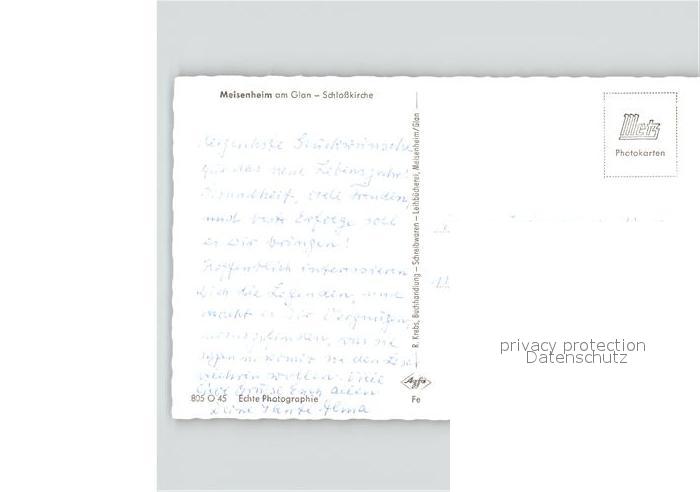 Meisenheim am Glan – Schloßkirche
Metz
Photokarten
Herzlichste Glückwünsche
für das neue Lebensjahr!
Gesundheit, viele Freuden,
und beste Erfolge soll
es Dir bringen!
Hoffentlich interessieren
Dich die Legenden, und
macht es Dir Vergnügen,
herauszufinden, was sie
wollen. Viele
liebe Grüße Euch allen
Deine Tante Alma
R. Krebs, Buchhandlung – Schreibwaren – Leihbücherei, Meisenheim/Glan
Agfa
805 O 45 Echte Photographie
Fe
privacy protection
Datenschutz